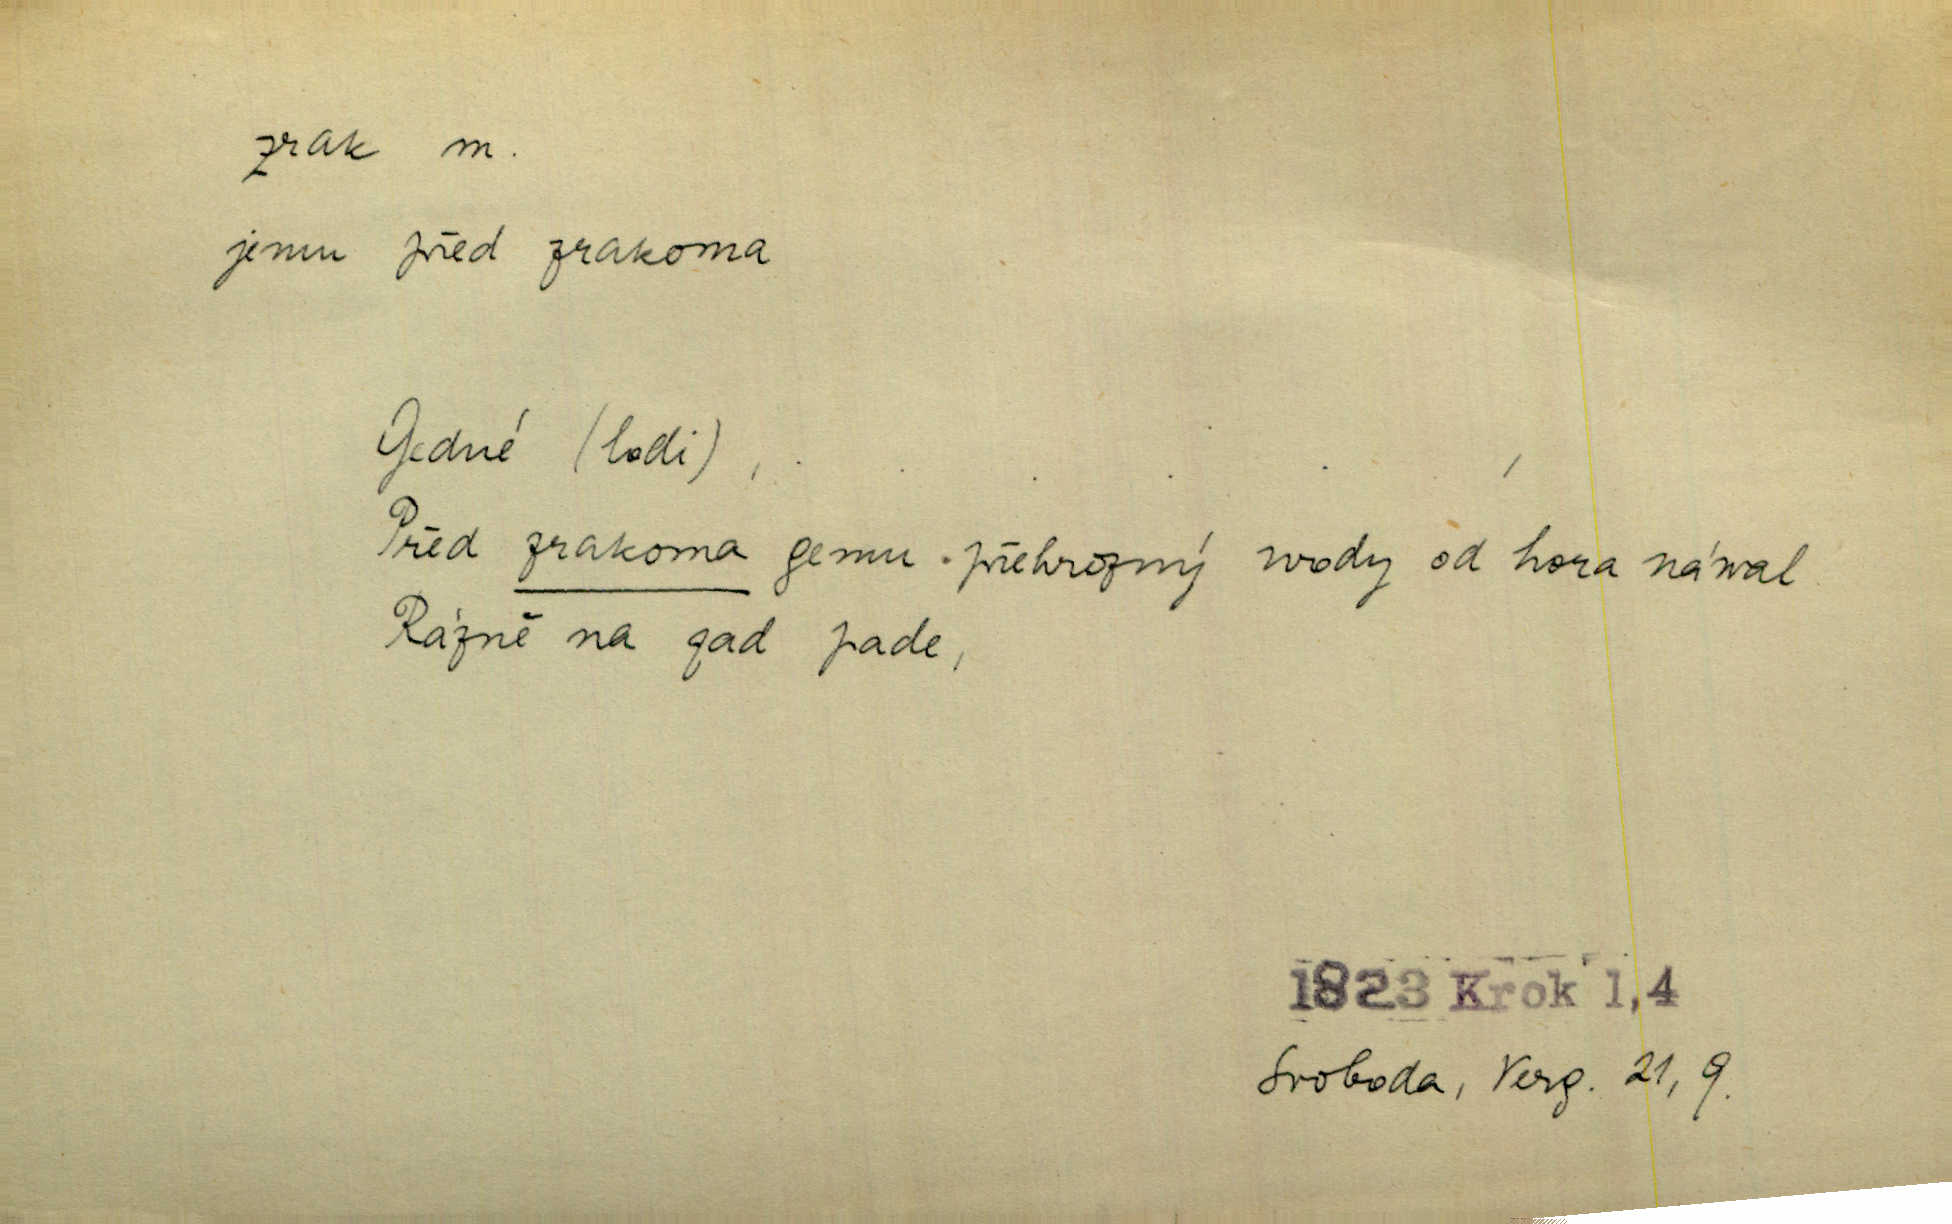 zrak m.
jemu před zrakoma
Gedné (lodi), . . . . . ,
Před zrakoma gemu přehrozný wody od hora náwal
Rázně na zad pade,
1823 Krok 1,4
Svoboda, Verg. 21, 9.